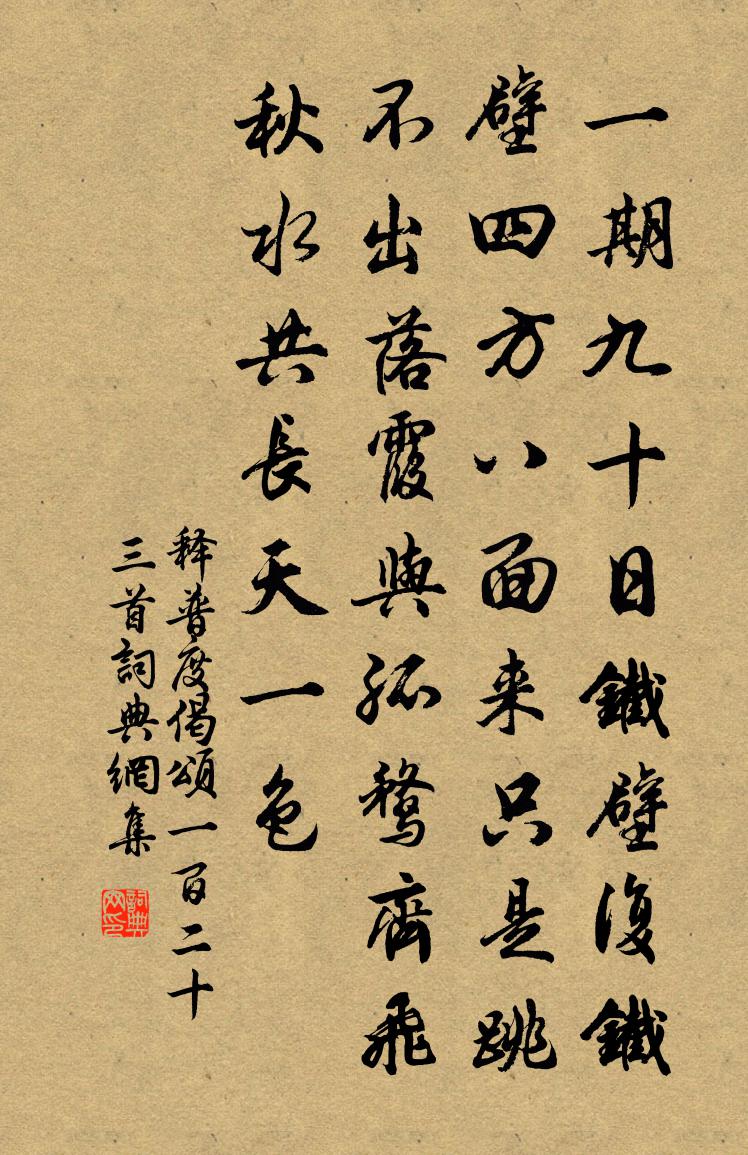 一期九十日鐵壁復鐵
壁四方八面来只是跳
不出落霞與孤鶩齊飛
秋水共長天一色
释普度偈頌一百二十
三首詞典網集
詞典网印